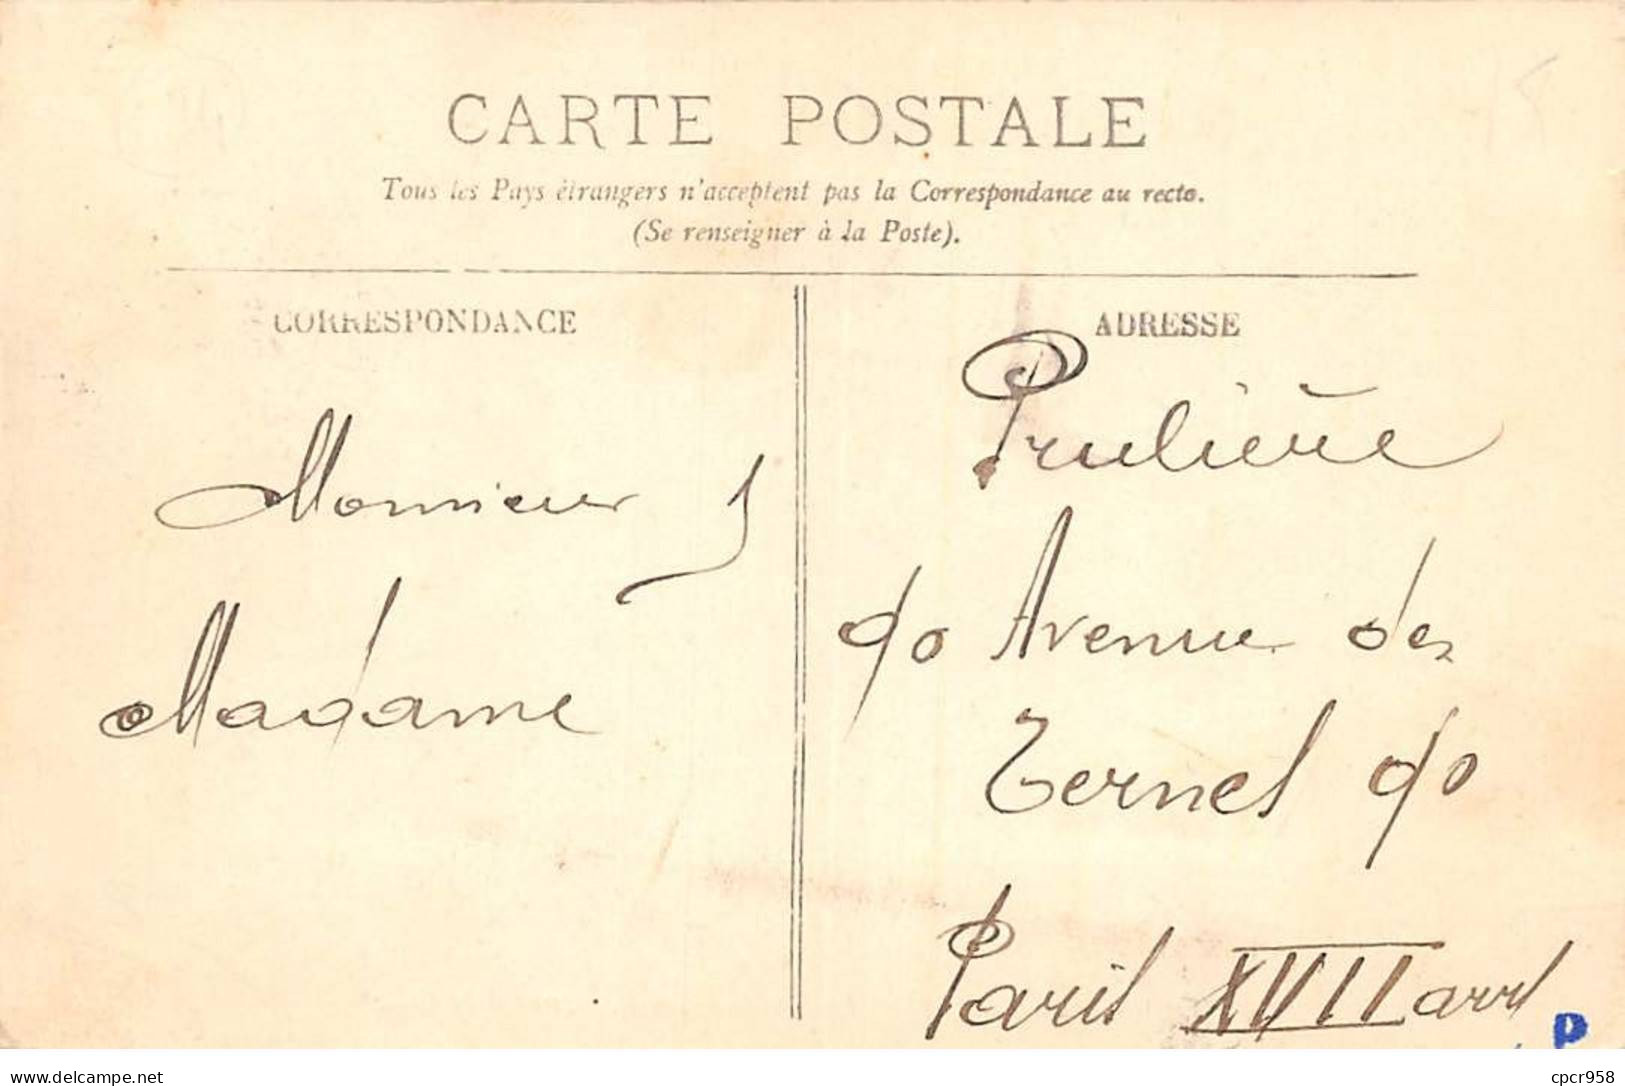 CARTE POSTALE
Tous les Pays étrangers n'acceptent pas la Correspondance au recto.
(Se renseigner à la Poste).
CORRESPONDANCE
Monsieur
Madame
ADRESSE
Prulière
90 Avenue des
Ternes 90
Paris XVII arrt
P
delcampe.net
cpcr958